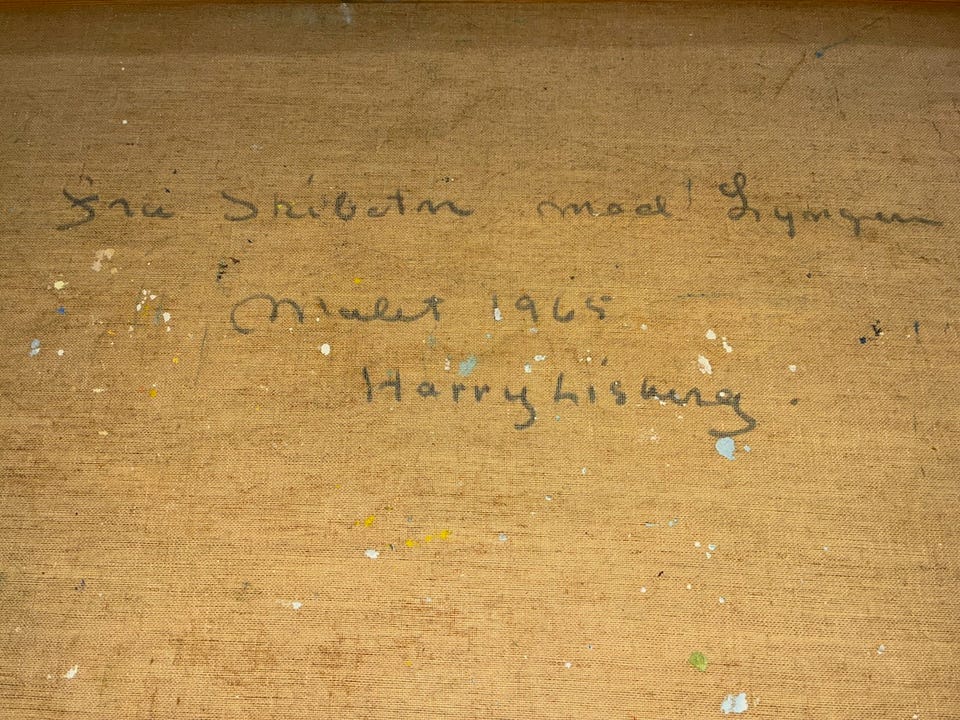 Fra Skibotn mod Lyngen
Malet 1965
Harry Lisberg.